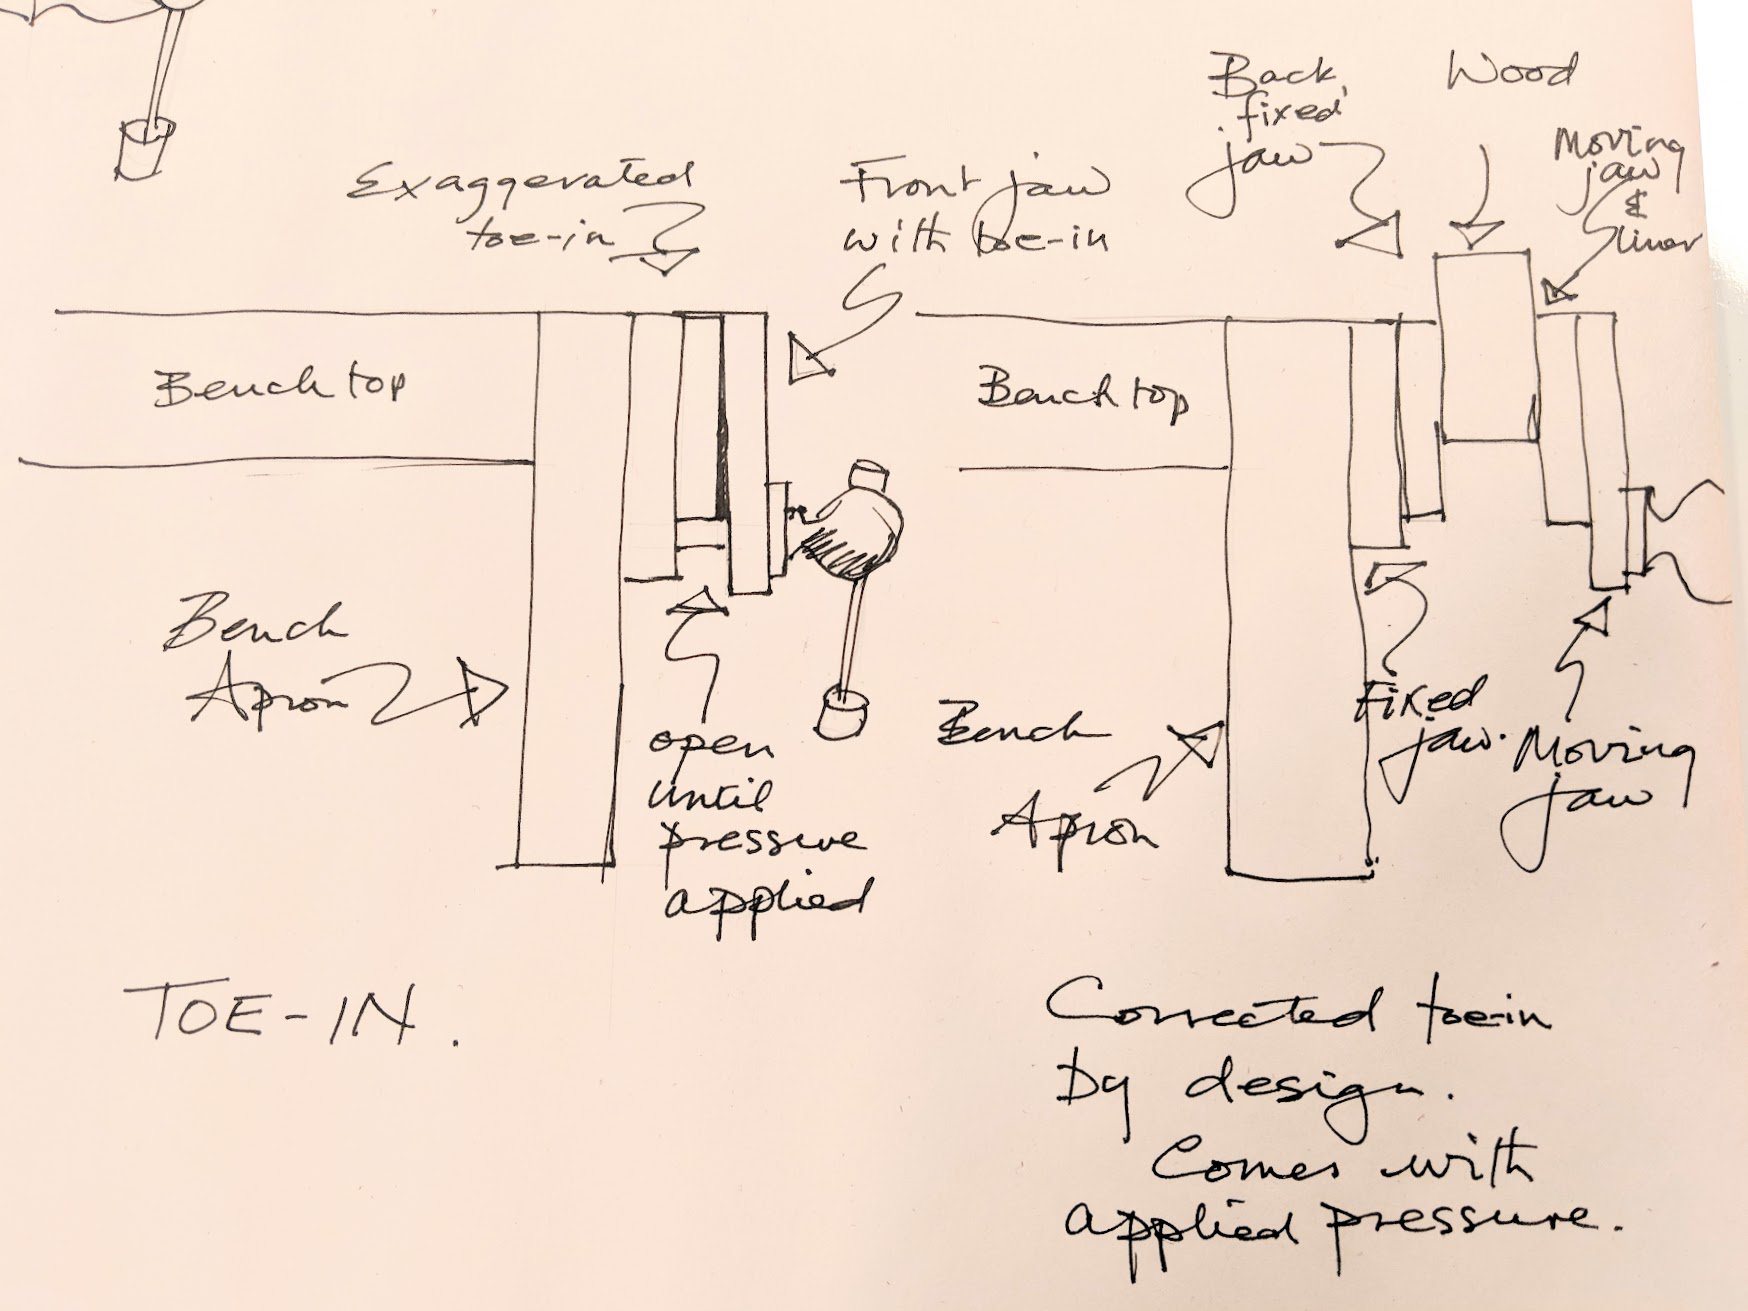 Exaggerated
toe-in
Front jaw
with toe-in
Bench top
Bench
Apron
open
until
pressure
applied
TOE-IN.
Back
fixed
jaw
Wood
Moving
jaw
&
liner
Bench top
Bench
Apron
Fixed
jaw.
Moving
jaw
Corrected toe-in
By design.
Comes with
applied pressure.